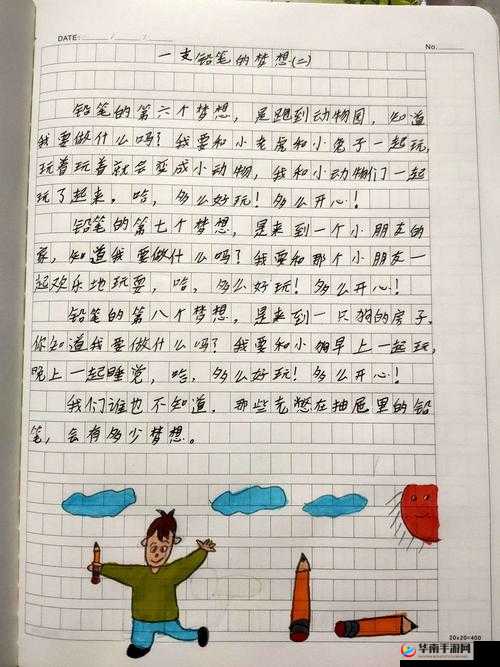 DATE: / /
No.
一支铅笔的梦想(二)
铅笔的第六个梦想，是跑到动物园，知道
我要做什么吗？我要和小老虎和小兔子一起玩，
玩着玩着就会变成小动物，我和小动物们一起
玩了起来。哈，多么好玩！多么开心！
铅笔的第七个梦想，是来到一个小朋友的
家，知道我要做什么吗？我要和那个小朋友一
起欢乐地玩耍，哈，多么好玩！多么开心！
铅笔的第八个梦想，是来到一只狗的房子，
你知道我要做什么吗？我要和小狗早上一起玩，
晚上一起睡觉，哈，多么好玩！多么开心！
我们谁也不知道，那些在抽屉里的铅
笔，会有多少梦想。
20x20=400
华南手游网